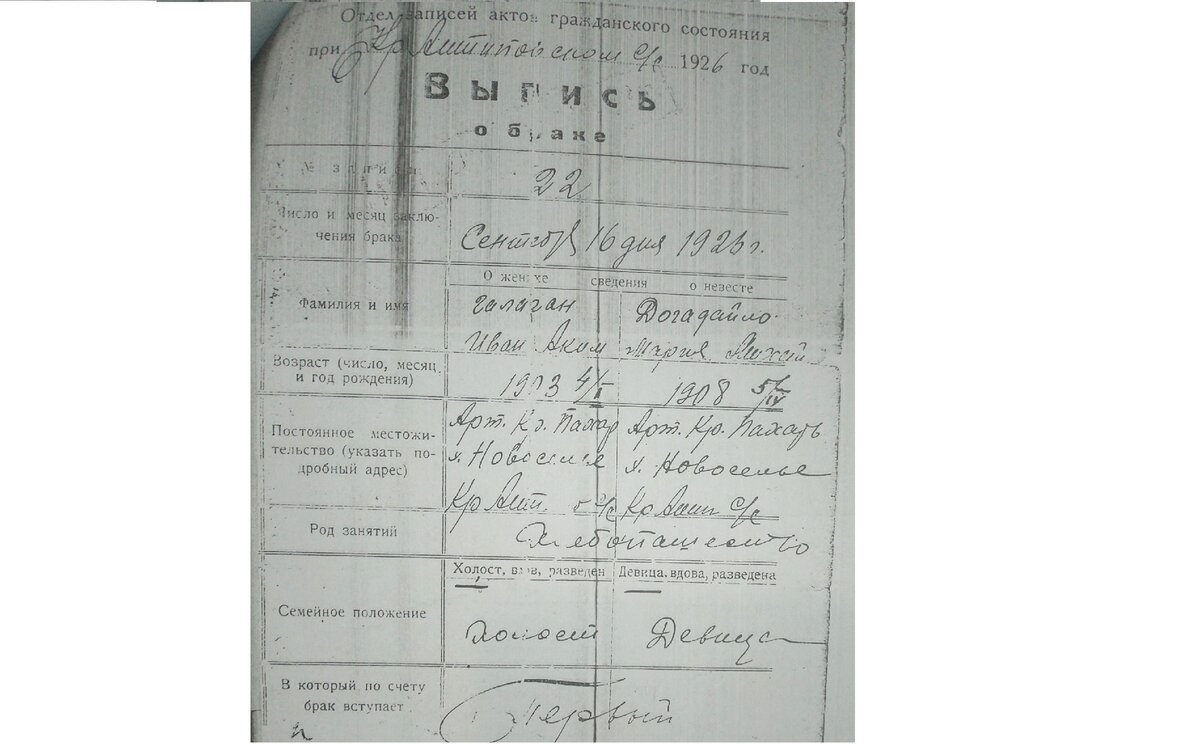 Отдел записей актов гражданского состояния
при Кр Антиповском с/с 1926 год
Выпись
о браке
№ записи 22
Число и месяц заклю-
чения брака Сентябр 16 дня 1926 г.
О женихе сведения о невесте
Фамилия и имя Галаган Догадайло
Иван Аким Мария Михай
Возраст (число, месяц
и год рождения) 1903 4/I 1908
Постоянное местожи-
тельство (указать по-
дробный адрес)
Арт. Кр. Пахар Арт. Кр. Пахарь
х. Новоселье х. Новоселье
Кр Ант. с/с Кр Ант с/с
Род занятий Хлебопашество
Холост, вдов, разведен Девица, вдова, разведена
Семейное положение Холост Девица
В который по счету
брак вступает Первый